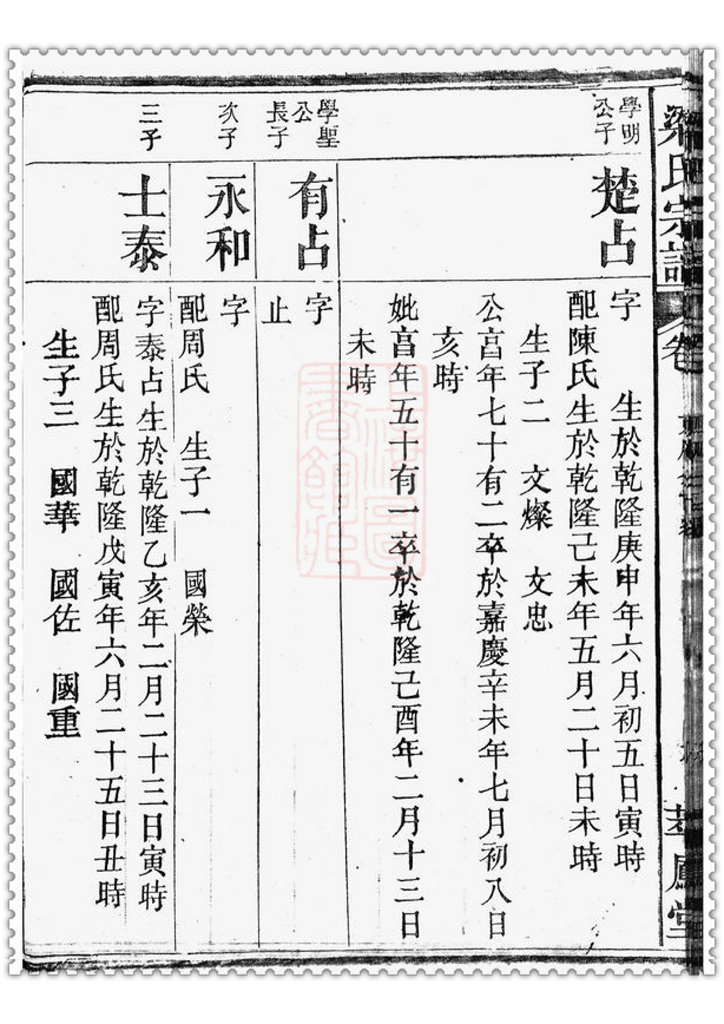 梁氏宗譜
卷
鳳堂
學明
公子
楚占
字 生於乾隆庚申年六月初五日寅時
配陳氏生於乾隆己未年五月二十日未時
生子二 文燦 文忠
公亯年七十有二卒於嘉慶辛未年七月初八日
亥時
妣亯年五十有一卒於乾隆己酉年二月十三日
未時
學聖
公
長子
有占
字
止
次子
永和
字
配周氏 生子一 國榮
三子
士泰
字泰占生於乾隆乙亥年二月二十三日寅時
配周氏生於乾隆戊寅年六月二十五日丑時
生子三 國華 國佐 國重